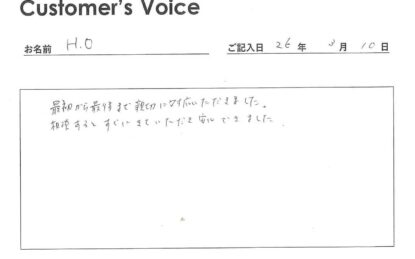 Customer's Voice
お名前 H.O ご記入日 26 年 3 月 10 日
最初から最後まで親切に対応いただきました。
相談するとすぐにきていただき安心できました。